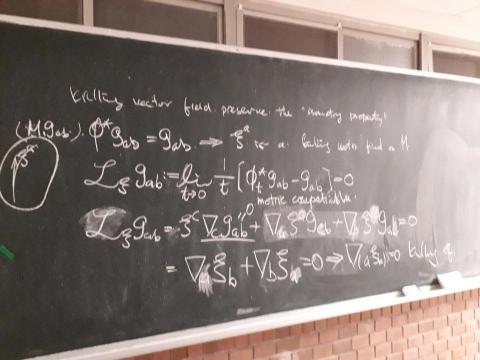 killing vector field preserve the "isometry property"
(M, gab). φ*gab = gab → ξᵃ is a killing vector field on M
ξᵃ
ℒξ gab := lim t→0 1/t [φt* gab - gab] = 0
metric compatible
ℒξ gab = ξᶜ ∇c gab⁰ + ∇a ξᶜ gcb + ∇b ξᶜ gac = 0
= ∇a ξb + ∇b ξa = 0 ⇒ ∇(a ξb) = 0 killing eq.